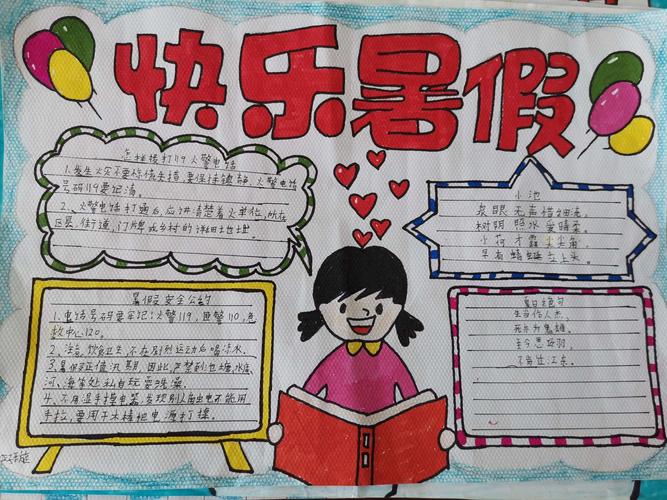 快乐暑假
怎样拨打119火警电话
1.发生火灾不要惊慌失措,要保持镇静,火警电话
号码119要记清。
2、火警电话打通后,应讲清楚着火单位,所在
区县、街道、门牌或乡村的详细地址。
小池
泉眼无声惜细流,
树阴照水爱晴柔。
小荷才露尖尖角,
早有蜻蜓立上头。
暑假安全公约
1.电话号码要牢记:火警119,匪警110,急
救中心120。
2、注意饮食卫生,不在剧烈运动后喝冷水。
3、暑假正值汛期,因此,严禁到池塘,水库、
河、海等处私自玩耍洗澡。
4、不用湿手摸电器,发现别人触电不能用
手拉,要用干木棒把电源打掉。
夏日绝句
生当作人杰,
死亦为鬼雄。
至今思项羽,
不肯过江东。